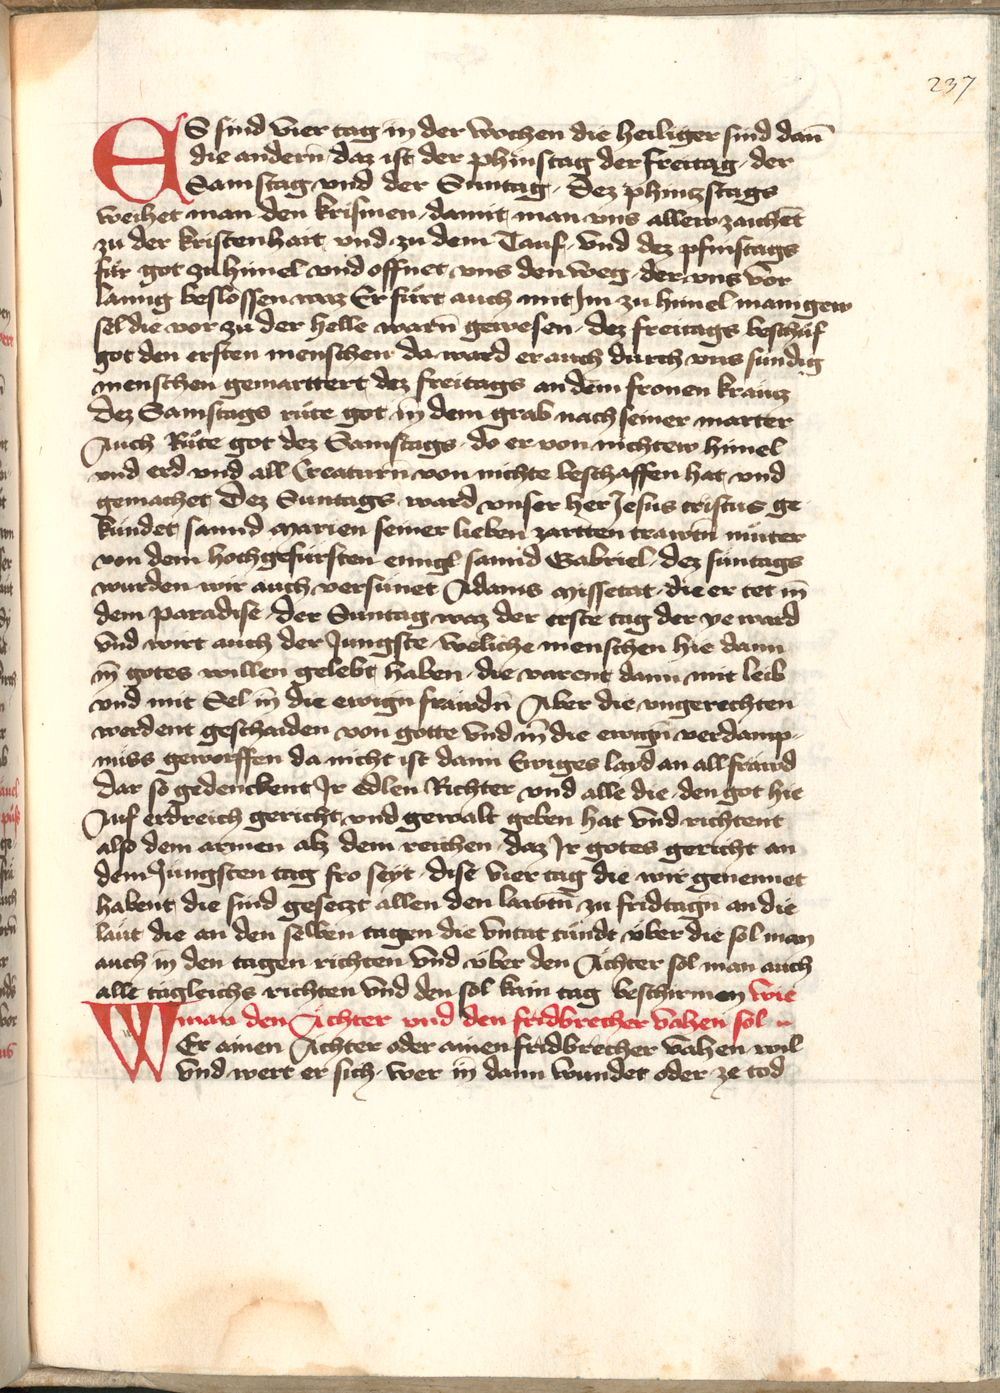 237
ES sind vier tag in der wochen die heiliger sind dañ
die andern̄ daz ist der phinstag der freitag der
Samstag vnd der Suntag Dez phinczstags
weihet man den krismen damit man vns allew zaichēt
zu der kristenhait vnd zu dem Tauf vnd dez pfinstags
für got zu himel vnd offnet vns den weg der vns vor
lanng beslossen waz Er fürt auch mit Jm zu himel manigew
sel die vor zu der helle warn̄ gewesen dez freitags beschuf
got den ersten menschen da ward er auch durch vns sündig
menschen gemarttert dez freitags an dem fronen kräutz
Dez Samstags rüte got in dem grab nach seiner marter
Auch Rüte got dez Samstags do er von nichtew himel
vnd erd vnd all Creaturn̄ von nichte beschaffen hat vnd
gemachet Dez Suntags ward vnser her Jesus cristus ge
kündet sannd Marien seiner lieben zartten trawtn̄ müter
von dem hochgefursten enngl sannd Gabriel dez suntags
wurden wir auch versünet Adams missetat die er tet in̄
dem paradise der Suntag waz der erste tag der ye ward
vnd wirt auch der Jungste weliche menschen hie dann
in̄ gotes willen gelebt haben die varent dann mit leib
vnd mit Sel in̄ die ewign̄ fräwdn̄ Aber die vngerechten
werdent geschaiden von gotte vnd in̄ die ewign̄ verdamp-
niss geworffen da nicht ist dann Ewiges layd an all fräwd
dar so gedenckent Jr Edlen Richter vnd alle die den got hie
Auf erdreich gericht vnd gewalt geben hat vnd richtent
also dem armen alz dem reichen daz Jr gotes gericht an
dem Jüngsten tag fro seyt dise vier tag die wir genennet
habent die sind gesetzt allen den lawtn̄ zu fridtagn̄ an die
läut die an den selben tagen die vntat tündt über die sol man
auch in den tagen richten vnd über den Ächter sol man auch
alle tägleichs richten vnd den sol kain tag beschirmen wie
man den Ächter vnd den fridbrecher vahen sol
WEr ainen Ächter oder ainen fridbrecher vahen wil
vnd wert er sich wer in dann wundet oder ze tod